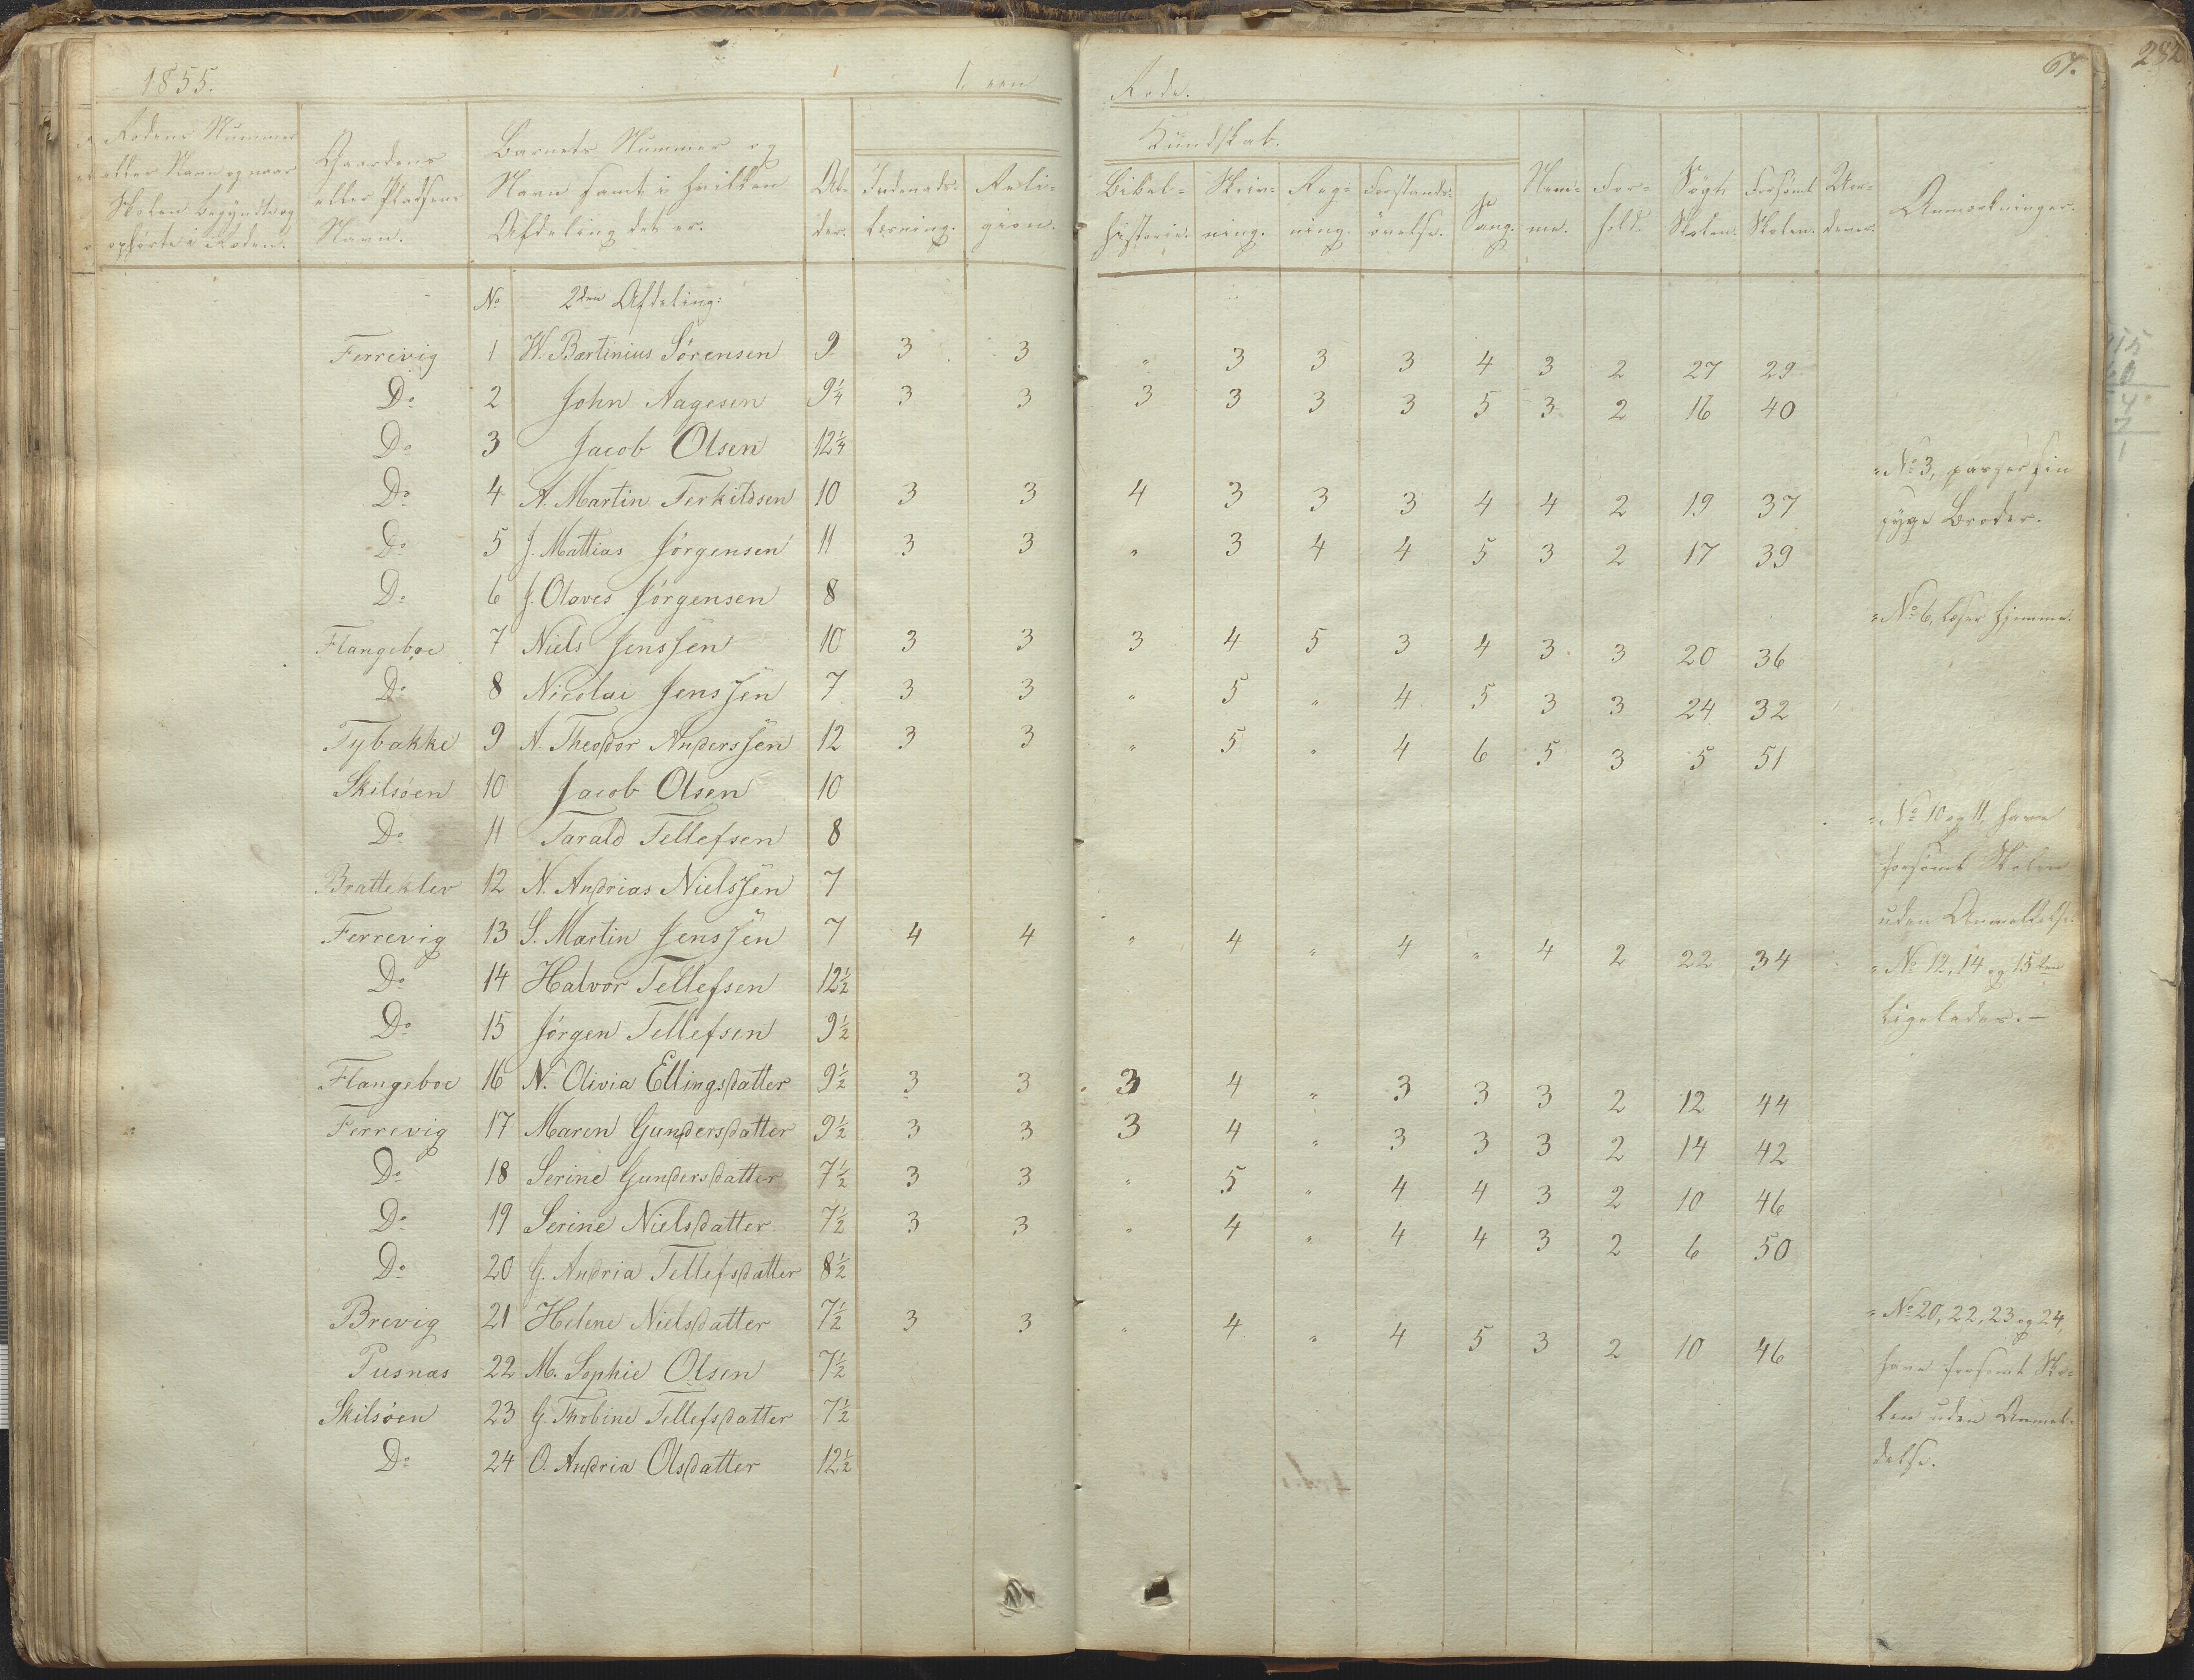 1855.
1. een
Rode.
67.
282
Rodens Nummer eller Navn og naar Skolen begyndte og ophørte i Roden.
Gaardens eller Pladsens Navn.
Barnets Nummer og Navn samt i hvilken Afdeling det er.
Alder.
Kundskab.
Indenadslæsning.
Religion.
Bibelhistorie.
Skrivning.
Regning.
Forstandsøvelse.
Sang.
Nemme.
Forhold.
Søgt Skolen.
Forsømt Skolen.
Anmærkninger.
No 2den Afdeling:
Ferrevig 1 W. Bartinius Sørensen 9 3 3 " 3 3 3 4 3 2 27 29
Do 2 John Aagesen 9 1/4 3 3 3 3 3 3 5 3 2 16 40
Do 3 Jacob Olsen 12 1/4
"No 3, passer sin
syge Broder.
Do 4 A. Martin Terkildsen 10 3 3 4 3 3 3 4 4 2 19 37
Do 5 J. Mattias Jørgensen 11 3 3 " 3 4 4 5 3 2 17 39
Do 6 J. Olaves Jørgensen 8
"No 6, læser hjemme.
Flangeboe 7 Niels Jenssen 10 3 3 3 4 5 3 4 3 3 20 36
Do 8 Nicolai Jenssen 7 3 3 " 5 " 4 5 3 3 24 32
Tybakke 9 A. Theodor Anderssen 12 3 3 " 5 " 4 6 5 3 5 51
Skilsøen 10 Jacob Olsen 10
Do 11 Tarald Tellefsen 8
"No 10 og 11, have
forsømt Skolen
uden Anmeldelse.
Bratteklev 12 N. Andrias Nielssen 7
Ferrevig 13 S. Martin Jenssen 7 4 4 " 4 " 4 " 4 2 22 34
Do 14 Halvor Tellefsen 12 1/2
"No 12, 14 og 15 ten
ligeledes.—
Do 15 Jørgen Tellefsen 9 1/2
Flangeboe 16 N. Olivia Ellingsdatter 9 1/2 3 3 3 4 " 3 3 3 2 12 44
Ferrevig 17 Maren Gundersdatter 9 1/2 3 3 3 4 " 3 3 3 2 14 42
Do 18 Serine Gundersdatter 7 1/2 3 3 " 5 " 4 4 3 2 10 46
Do 19 Serine Nielsdatter 7 1/2 3 3 " 4 " 4 4 3 2 6 50
Do 20 G. Andria Tellefsdatter 8 1/2
Brevig 21 Helene Nielsdatter 7 1/2 3 3 " 4 " 4 5 3 2 10 46
"No 20, 22, 23 og 24,
have forsømt Sko-
len uden Anmel-
delse.
Pusnæs 22 M. Sophie Olsen 7 1/2
Skilsøen 23 G. Thobine Tellefsdatter 7 1/2
Do 24 O. Andria Olsdatter 12 1/2